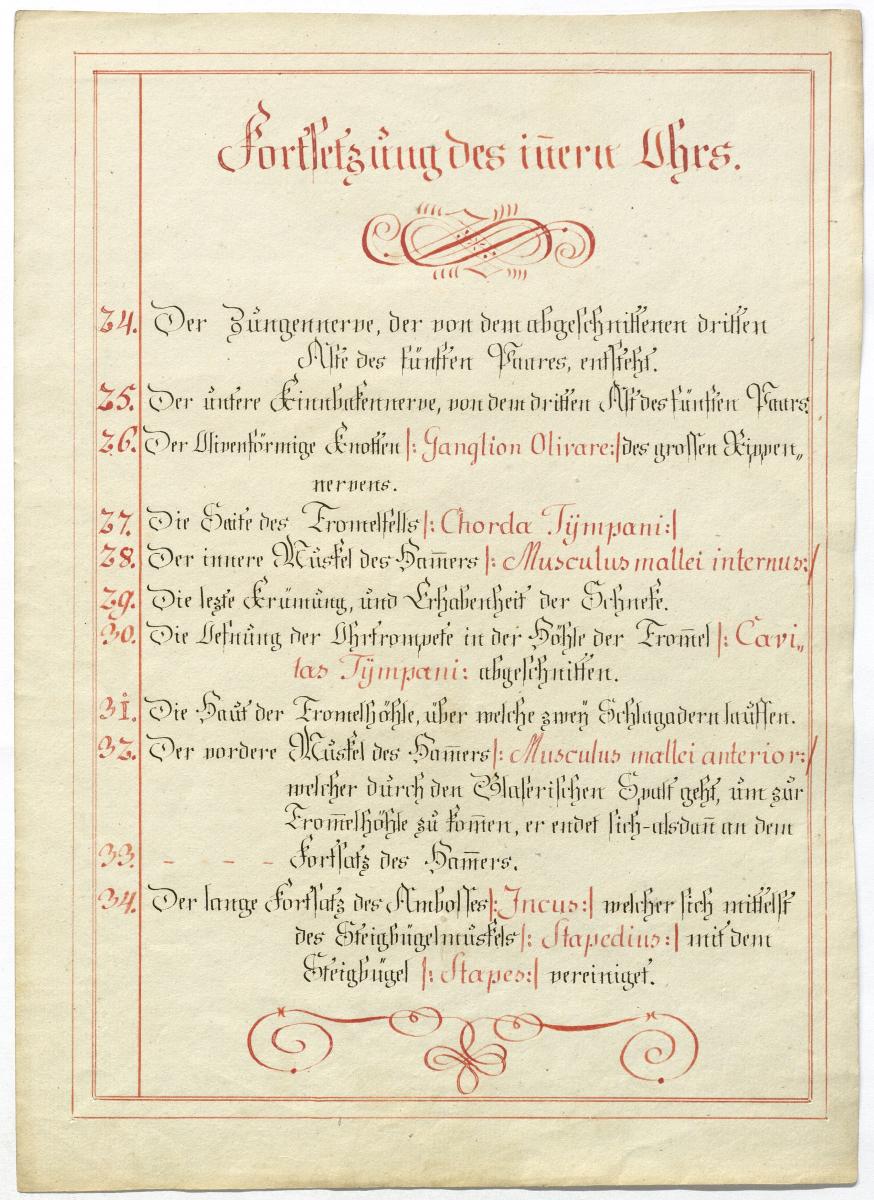 Fortsetzung des iñern Ohrs.
24. Der Zungennerve, der von dem abgeschnittenen dritten
Aste des fünften Paares, entsteht.
25. Der untere Kinnbakennerve, von dem dritten Ast des fünften Paars
26. Der Olivenförmige Knotten |: Ganglion Olivare:| des grossen Rippen„
nervens.
27. Die Saite des Tromelfells |: Chorda Tÿmpani:|
28. Der innere Muskel des Ham̄ers |: Musculus mallei internus:/
29. Die lezte Krümung, und Erhabenheit der Schneke.
30. Die Oefnung der Ohrtrompete in der Höhle der Trom̄el |: Cavi„
tas Tÿmpani: abgeschnitten.
31. Die Haut der Tromelhöhle, über welche zweÿ Schlagadern lauffen.
32. Der vordere Muskel des Ham̄ers |: Musculus mallei anterior:/
welcher durch den Glaserischen Spalt geht, um zur
Trom̄elhöhle zu kom̄en, er endet sich alsdañ an dem
33. - - - Fortsatz des Ham̄ers.
34. Der lange Fortsatz des Ambosses |: Incus:| welcher sich mittelst
des Steigbügelmuskels |: Stapedius:| mit dem
Steigbügel |: Stapes:| vereiniget.